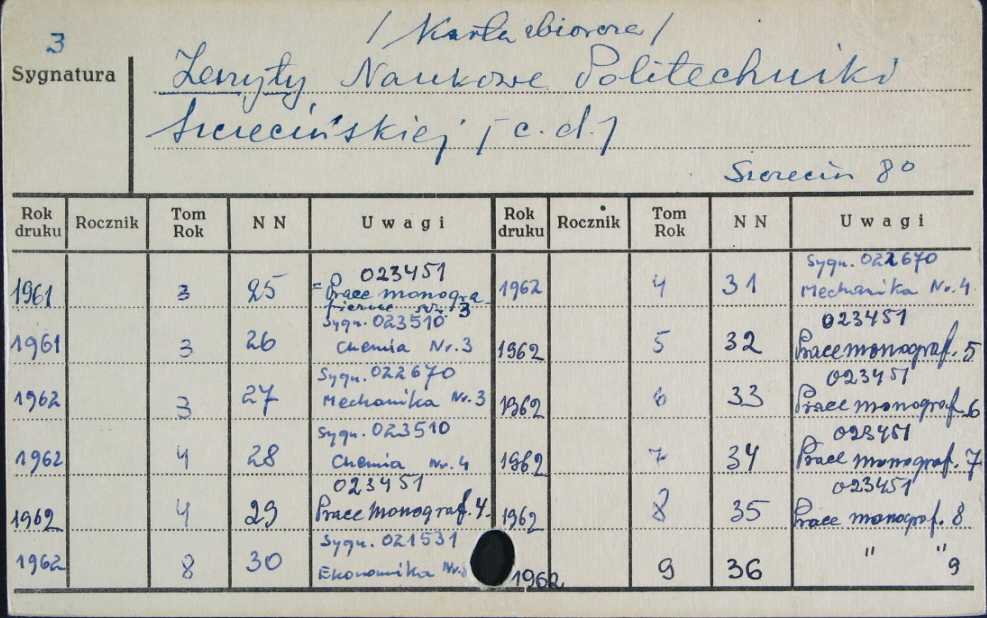 / Karta zbiorcza /
3
Sygnatura
Zeszyty Naukowe Politechniki
Szczecińskiej / c.d. /
Szczecin 8°
Rok druku Rocznik Tom Rok NN Uwagi Rok druku Rocznik Tom Rok NN Uwagi
1961 3 25 = 023451 Prace monograficzne Nr. 3
1961 3 26 Sygn. 023510 Chemia Nr. 3
1962 3 27 Sygn. 022670 Mechanika Nr. 3
1962 4 28 Sygn. 023510 Chemia Nr. 4
1962 4 29 023451 Prace monograf. 4.
1962 8 30 Sygn. 021531 Ekonomika Nr.
1962 4 31 Sygn. 022670 Mechanika Nr. 4
1962 5 32 023451 Prace monograf. 5
1962 6 33 023451 Prace monograf. 6
1962 7 34 023451 Prace monograf. 7
1962 8 35 023451 Prace monograf. 8
1962 9 36 " " 9